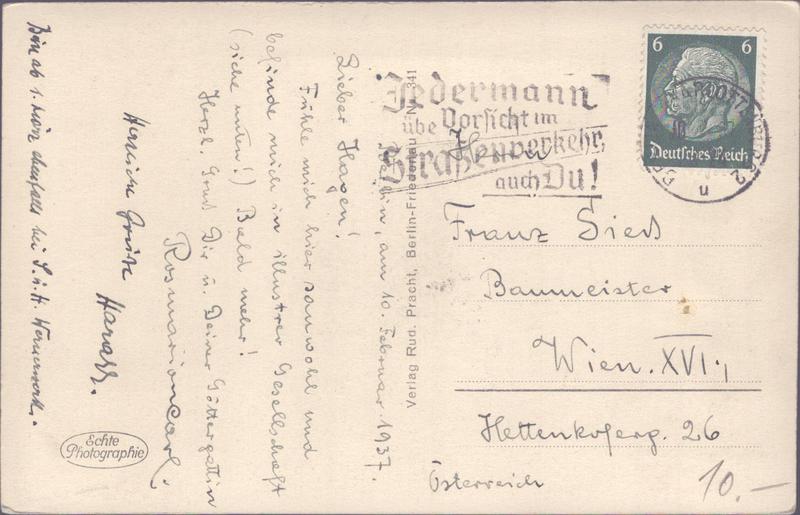 Berlin, am 10. Februar 1937.
Lieber Hagen!
Fühle mich hier sauwohl und
befinde mich in illustrer Gesellschaft
(siehe unten!) Bald mehr!
Herzl. Gruß Dir u. Deiner Göttergattin
Herzliche Grüße
Bin ab 1. März ebenfalls bei S. u. H. Wernerwerk.
Echte
Photographie
Verlag Rud. Pracht, Berlin-Friedenau Nr. 341
Jedermann
übe Vorsicht im
Straßenverkehr,
auch Du!
6 6
Deutsches Reich
u
Herrn
Franz Sieß
Baumeister
Wien. XVI.,
Hettenkoferg. 26
Österreich
10.—